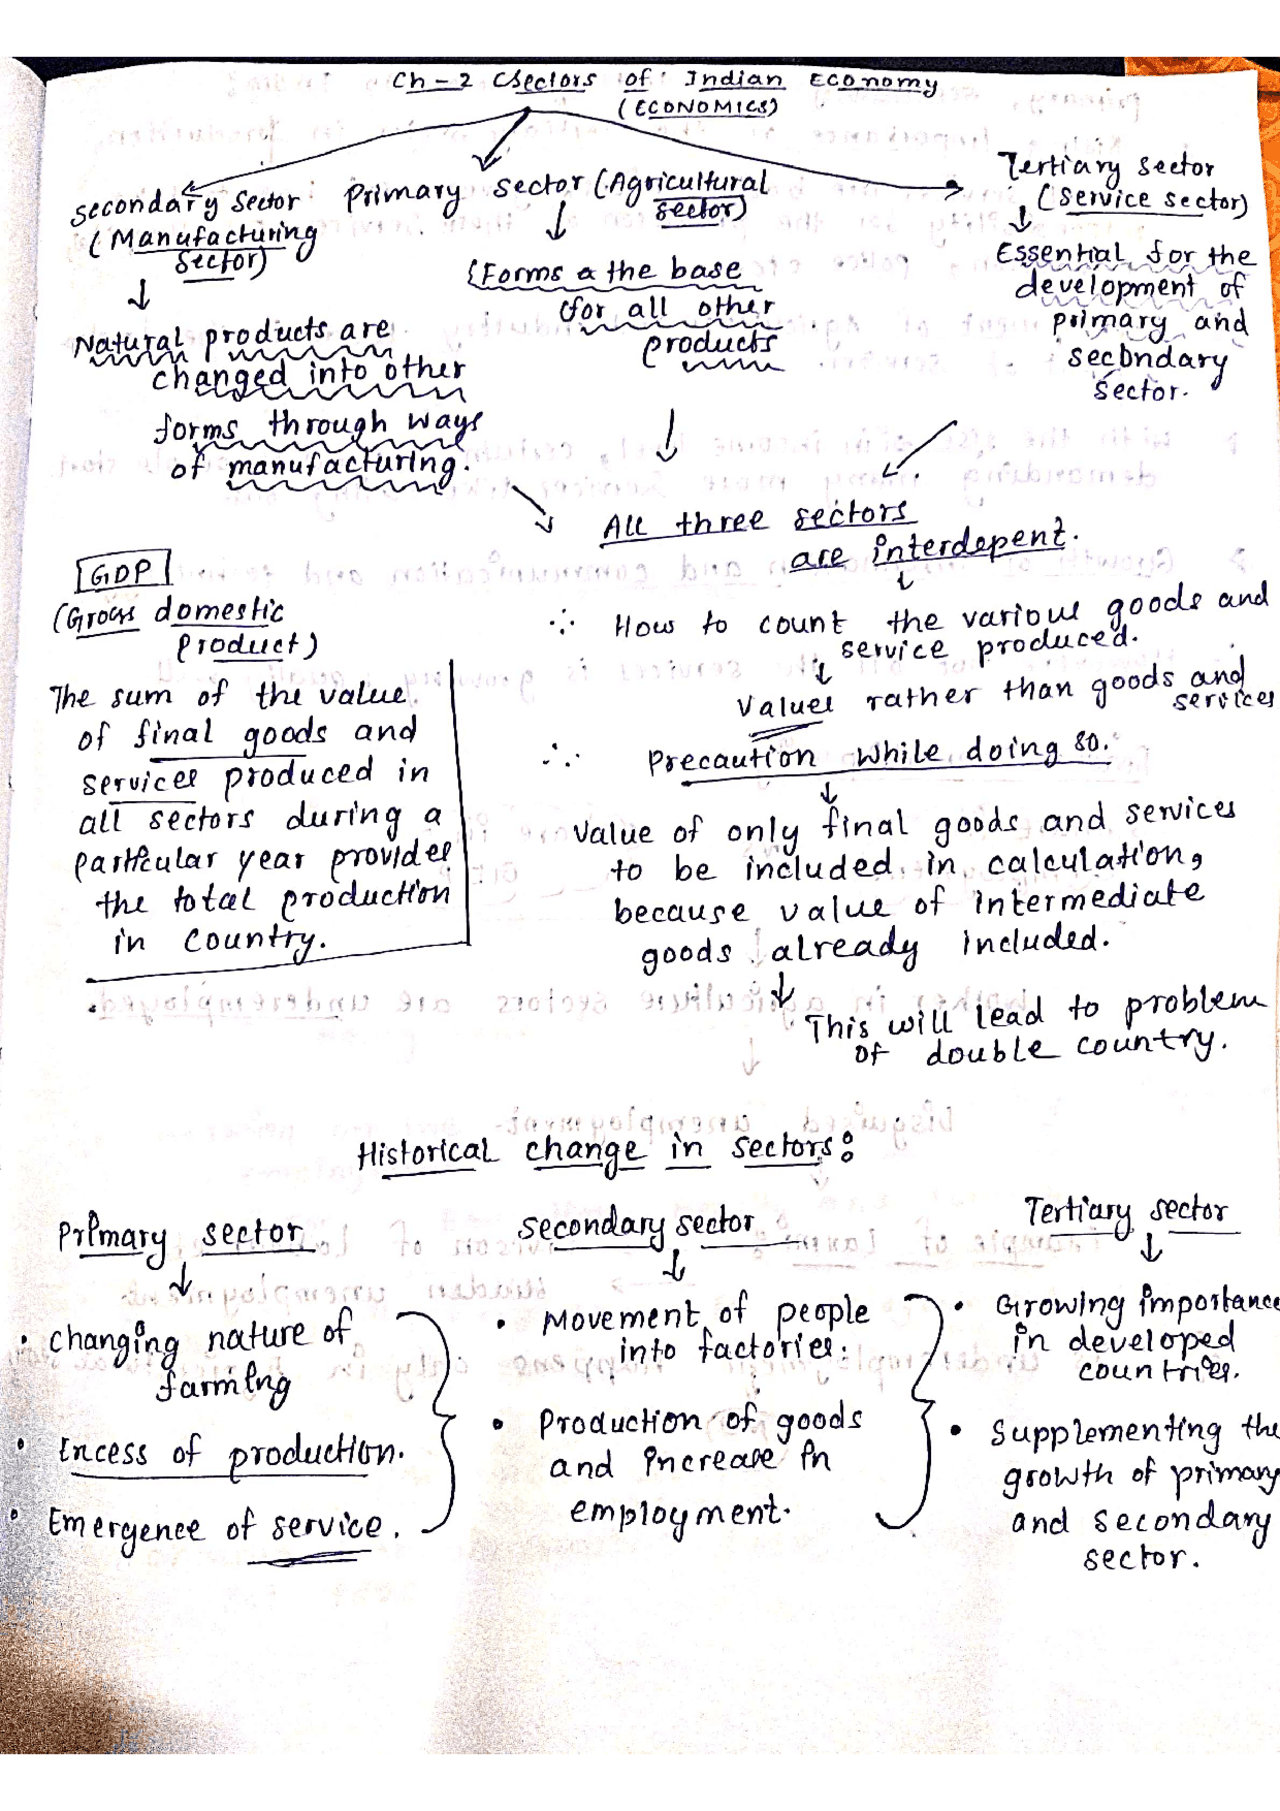 Ch-2 (Sectors of Indian Economy
(ECONOMICS)
Secondary Sector
(Manufacturing
Sector)
↓
Natural products are
changed into other
forms through ways
of manufacturing.
Primary Sector (Agricultural
sector)
↓
(Forms a the base
for all other
products
↓
Tertiary sector
(Service sector)
↓
Essential for the
development of
primary and
secondary
sector.
All three sectors
are interdepent.
↓
∴ How to count the various goods and
service produced.
↓
Values rather than goods and
services
∴ Precaution while doing so.
↓
Value of only final goods and services
to be included in calculation,
because value of intermediate
goods already included.
↓
This will lead to problem
of double country.
GDP
(Gross domestic
Product)
The sum of the value
of final goods and
services produced in
all sectors during a
particular year provides
the total production
in country.
Historical change in sectors:
Primary sector
↓
• Changing nature of
farming
• Excess of production.
• Emergence of service.
Secondary sector
↓
• Movement of people
into factories.
• Production of goods
and increase in
employment.
Tertiary sector
↓
• Growing importance
in developed
countries.
• Supplementing the
growth of primary
and secondary
sector.